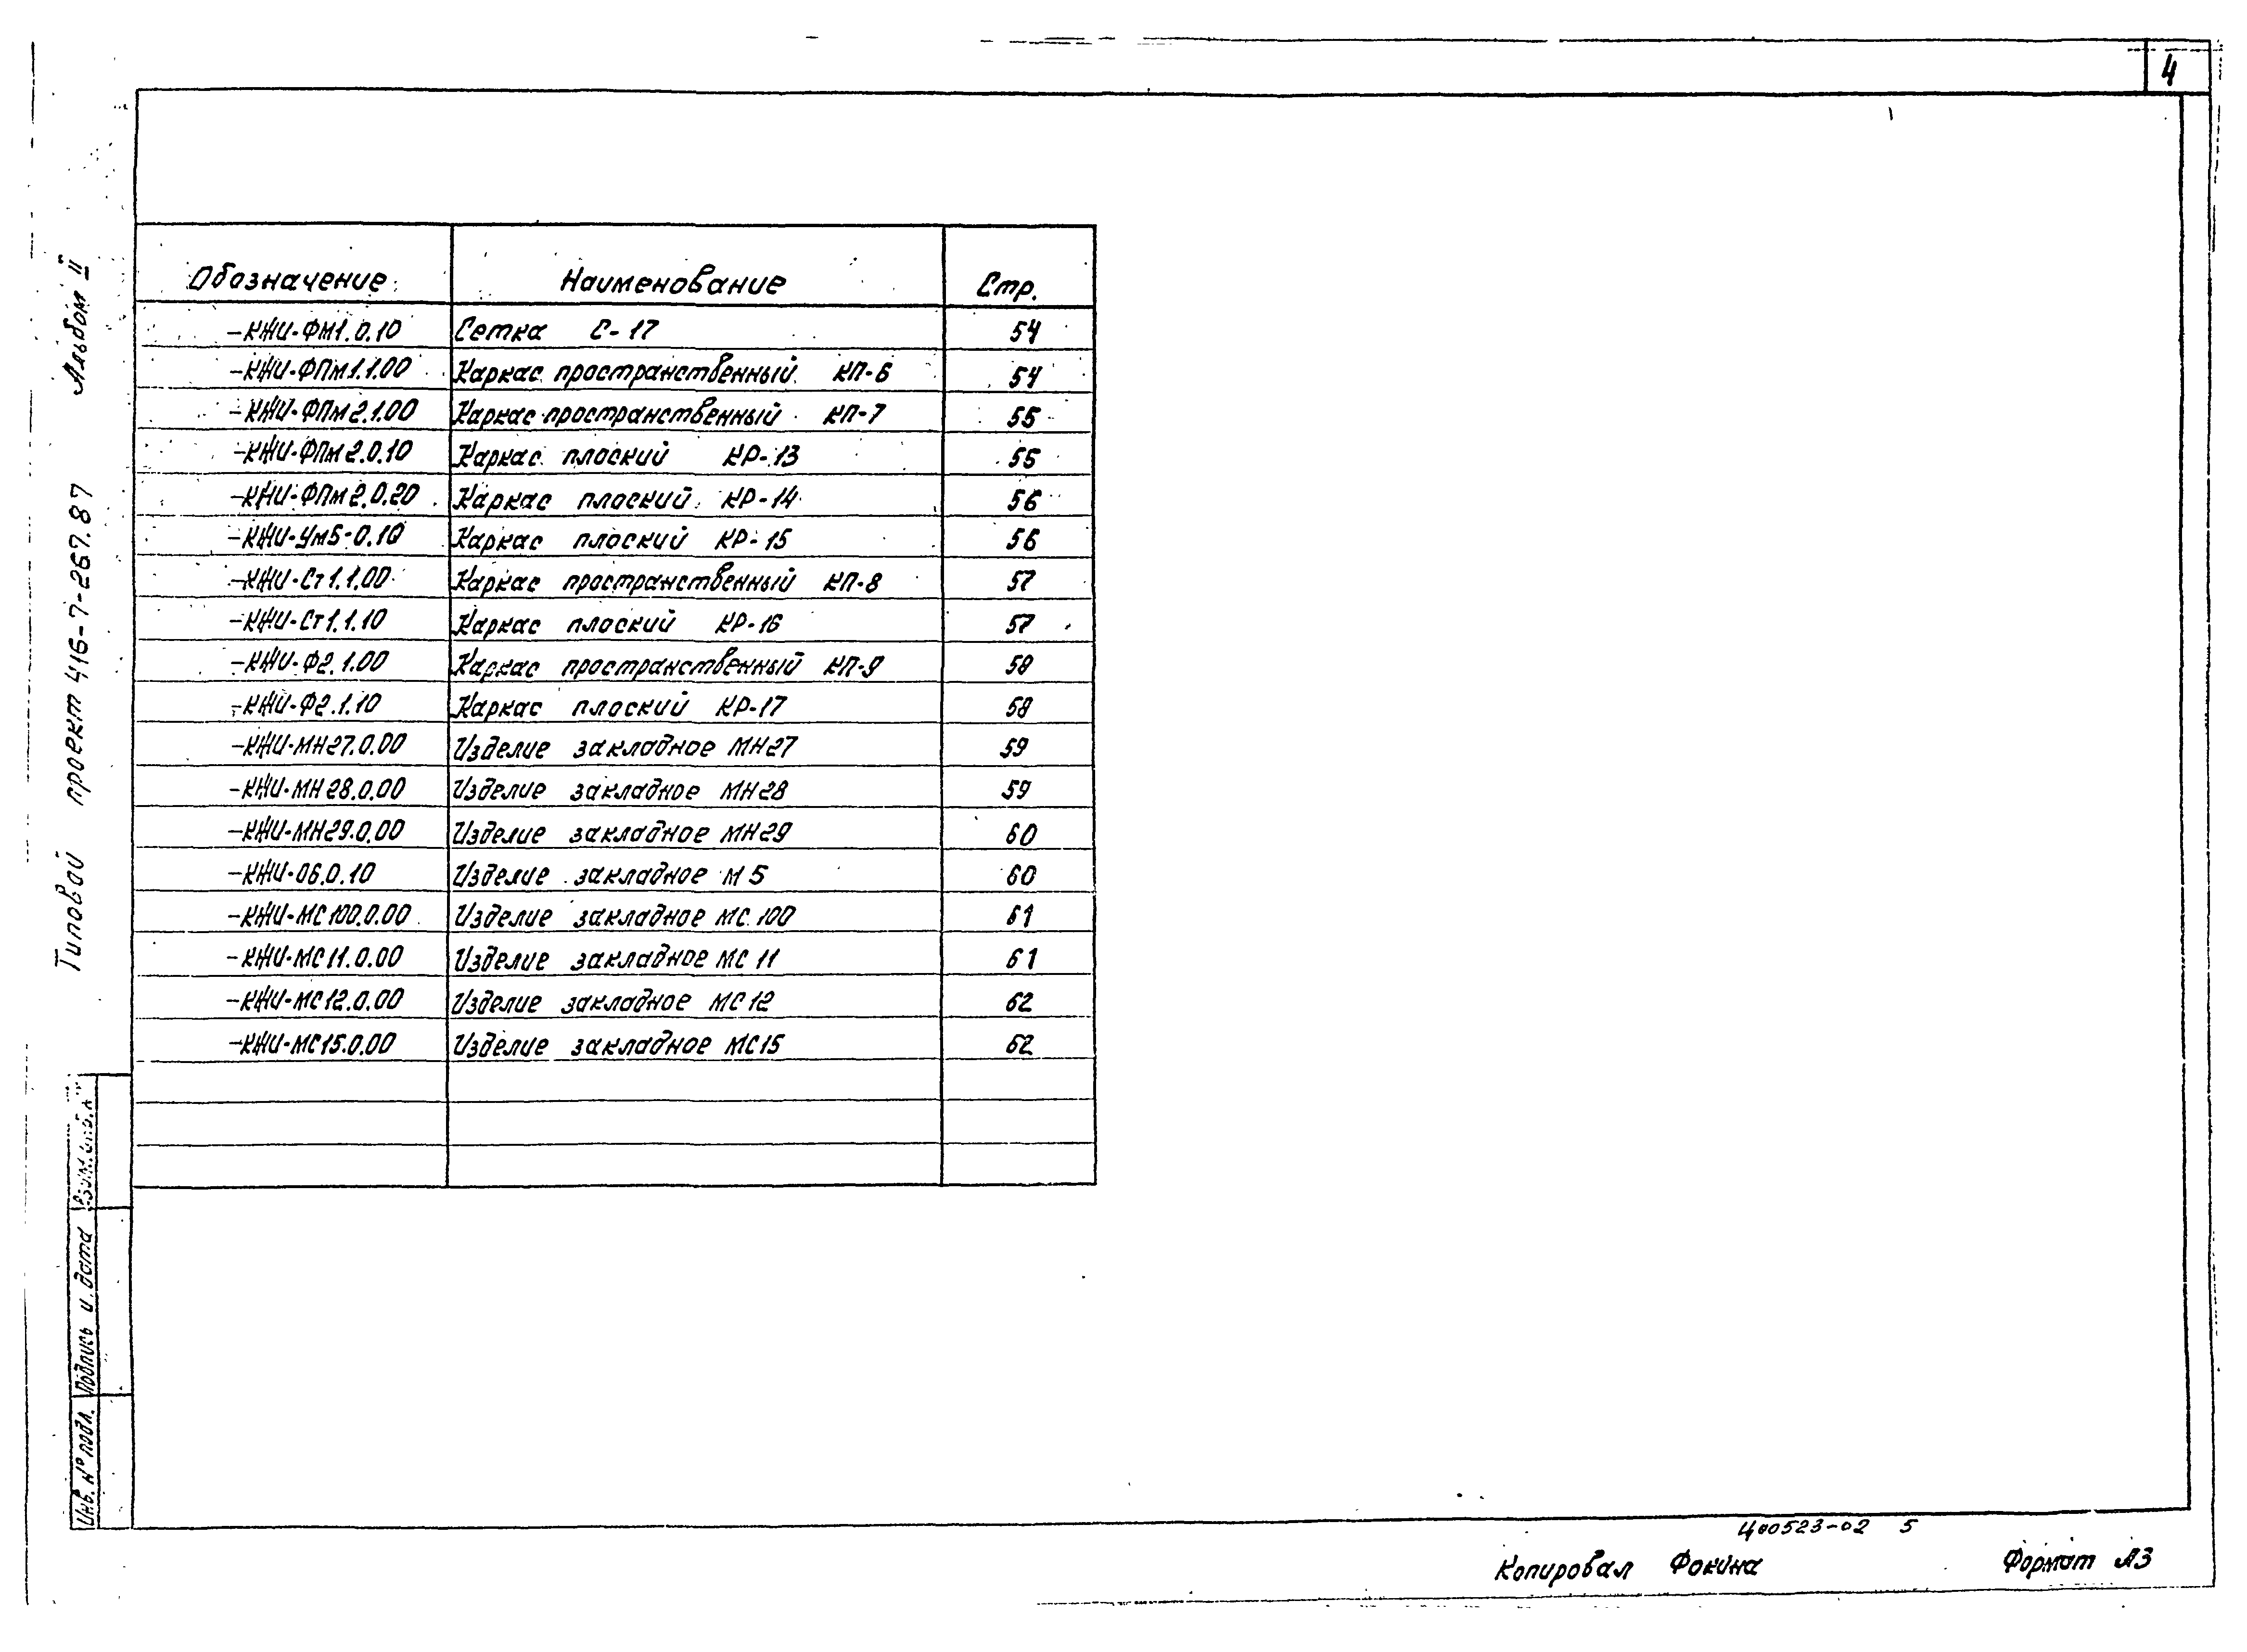 4
Типовой проект 416-7-267.87 Альбом II
Обозначение Наименование Стр.
-КЖИ-ФМ1.0.10 Сетка С-17 54
-КЖИ-ФПм1.1.00 Каркас пространственный КП-6 54
-КЖИ-ФПм2.1.00 Каркас пространственный КП-7 55
-КЖИ-ФПм2.0.10 Каркас плоский КР-13 55
-КЖИ-ФПм2.0.20 Каркас плоский КР-14 56
-КЖИ-Ум5-0.10 Каркас плоский КР-15 56
-КЖИ-Ст1.1.00 Каркас пространственный КП-8 57
-КЖИ-Ст1.1.10 Каркас плоский КР-16 57
-КЖИ-Ф2.1.00 Каркас пространственный КП-9 58
-КЖИ-Ф2.1.10 Каркас плоский КР-17 58
-КЖИ-МН27.0.00 Изделие закладное МН27 59
-КЖИ-МН28.0.00 Изделие закладное МН28 59
-КЖИ-МН29.0.00 Изделие закладное МН29 60
-КЖИ-06.0.10 Изделие закладное М5 60
-КЖИ-МС100.0.00 Изделие закладное МС100 61
-КЖИ-МС11.0.00 Изделие закладное МС11 61
-КЖИ-МС12.0.00 Изделие закладное МС12 62
-КЖИ-МС15.0.00 Изделие закладное МС15 62
Инв. № подл. Подпись и дата Взам. инв. №
Ц00523-02 5
Копировал Фокина Формат А3